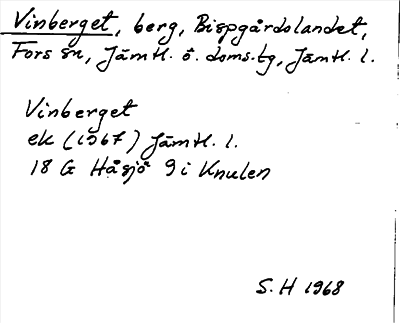 Vinberget, berg, Bispgårdolandet,
Fors sn, Jämtl. ö. doms.bg, Jämtl. l.
Vinberget
ek (1967) Jämtl. l.
18 G Håsjö 9 i Knulen
S. H 1968